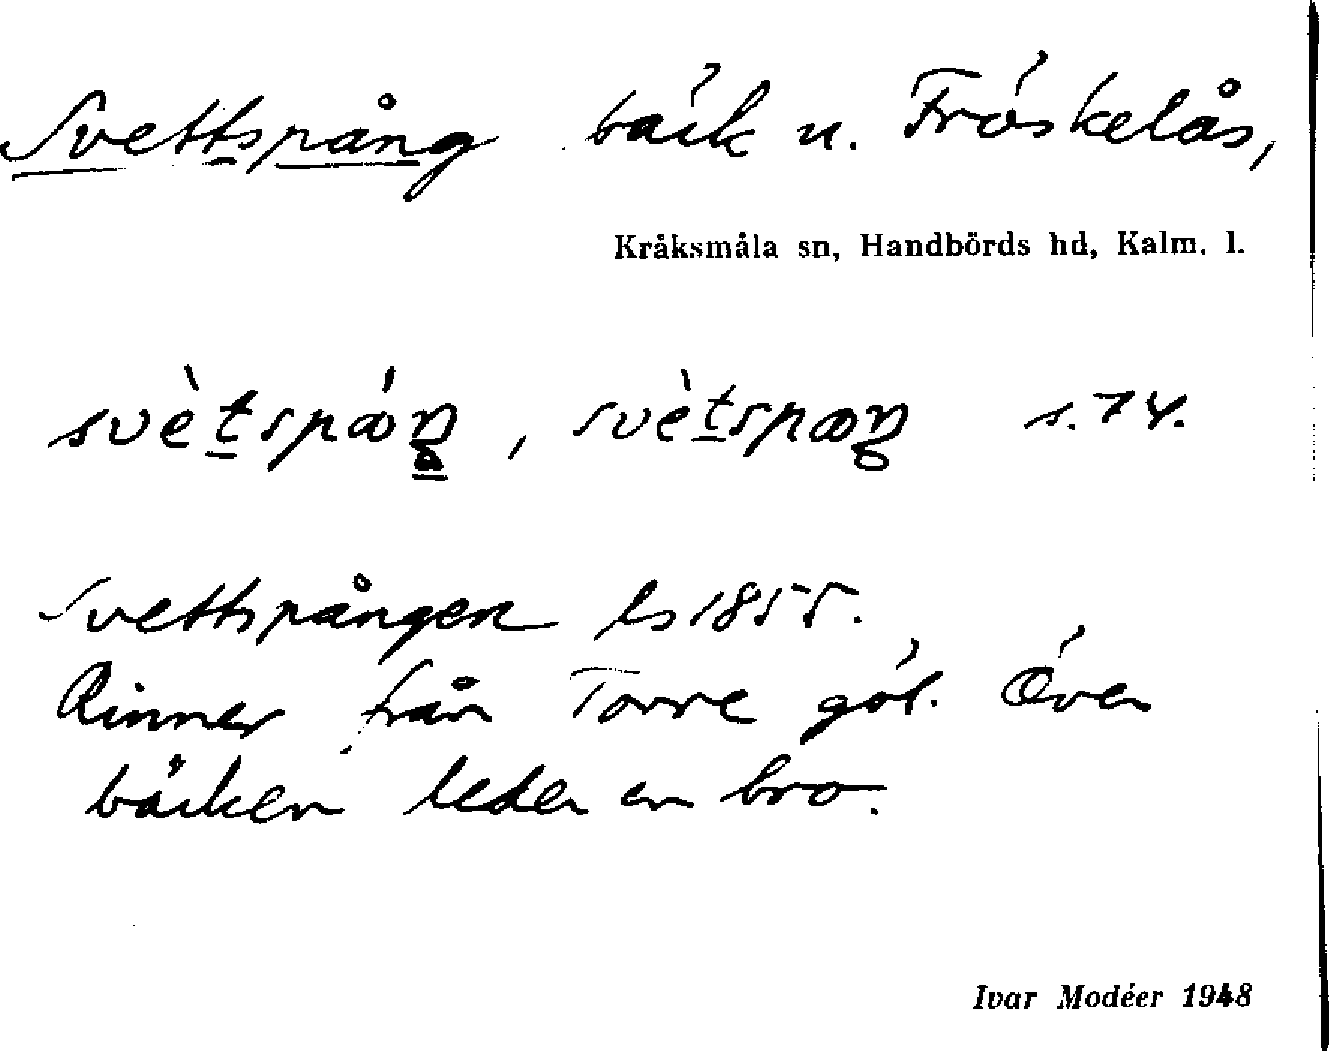 Svettspång bäck u. Fröskelås,
Kråksmåla sn, Handbörds hd, Kalm. l.
svètspáŋ, svètspaŋ s. 74.
Svettspången ls 1855.
Rinner från Torre göl. Över
bäcken leder en bro.
Ivar Modéer 1948